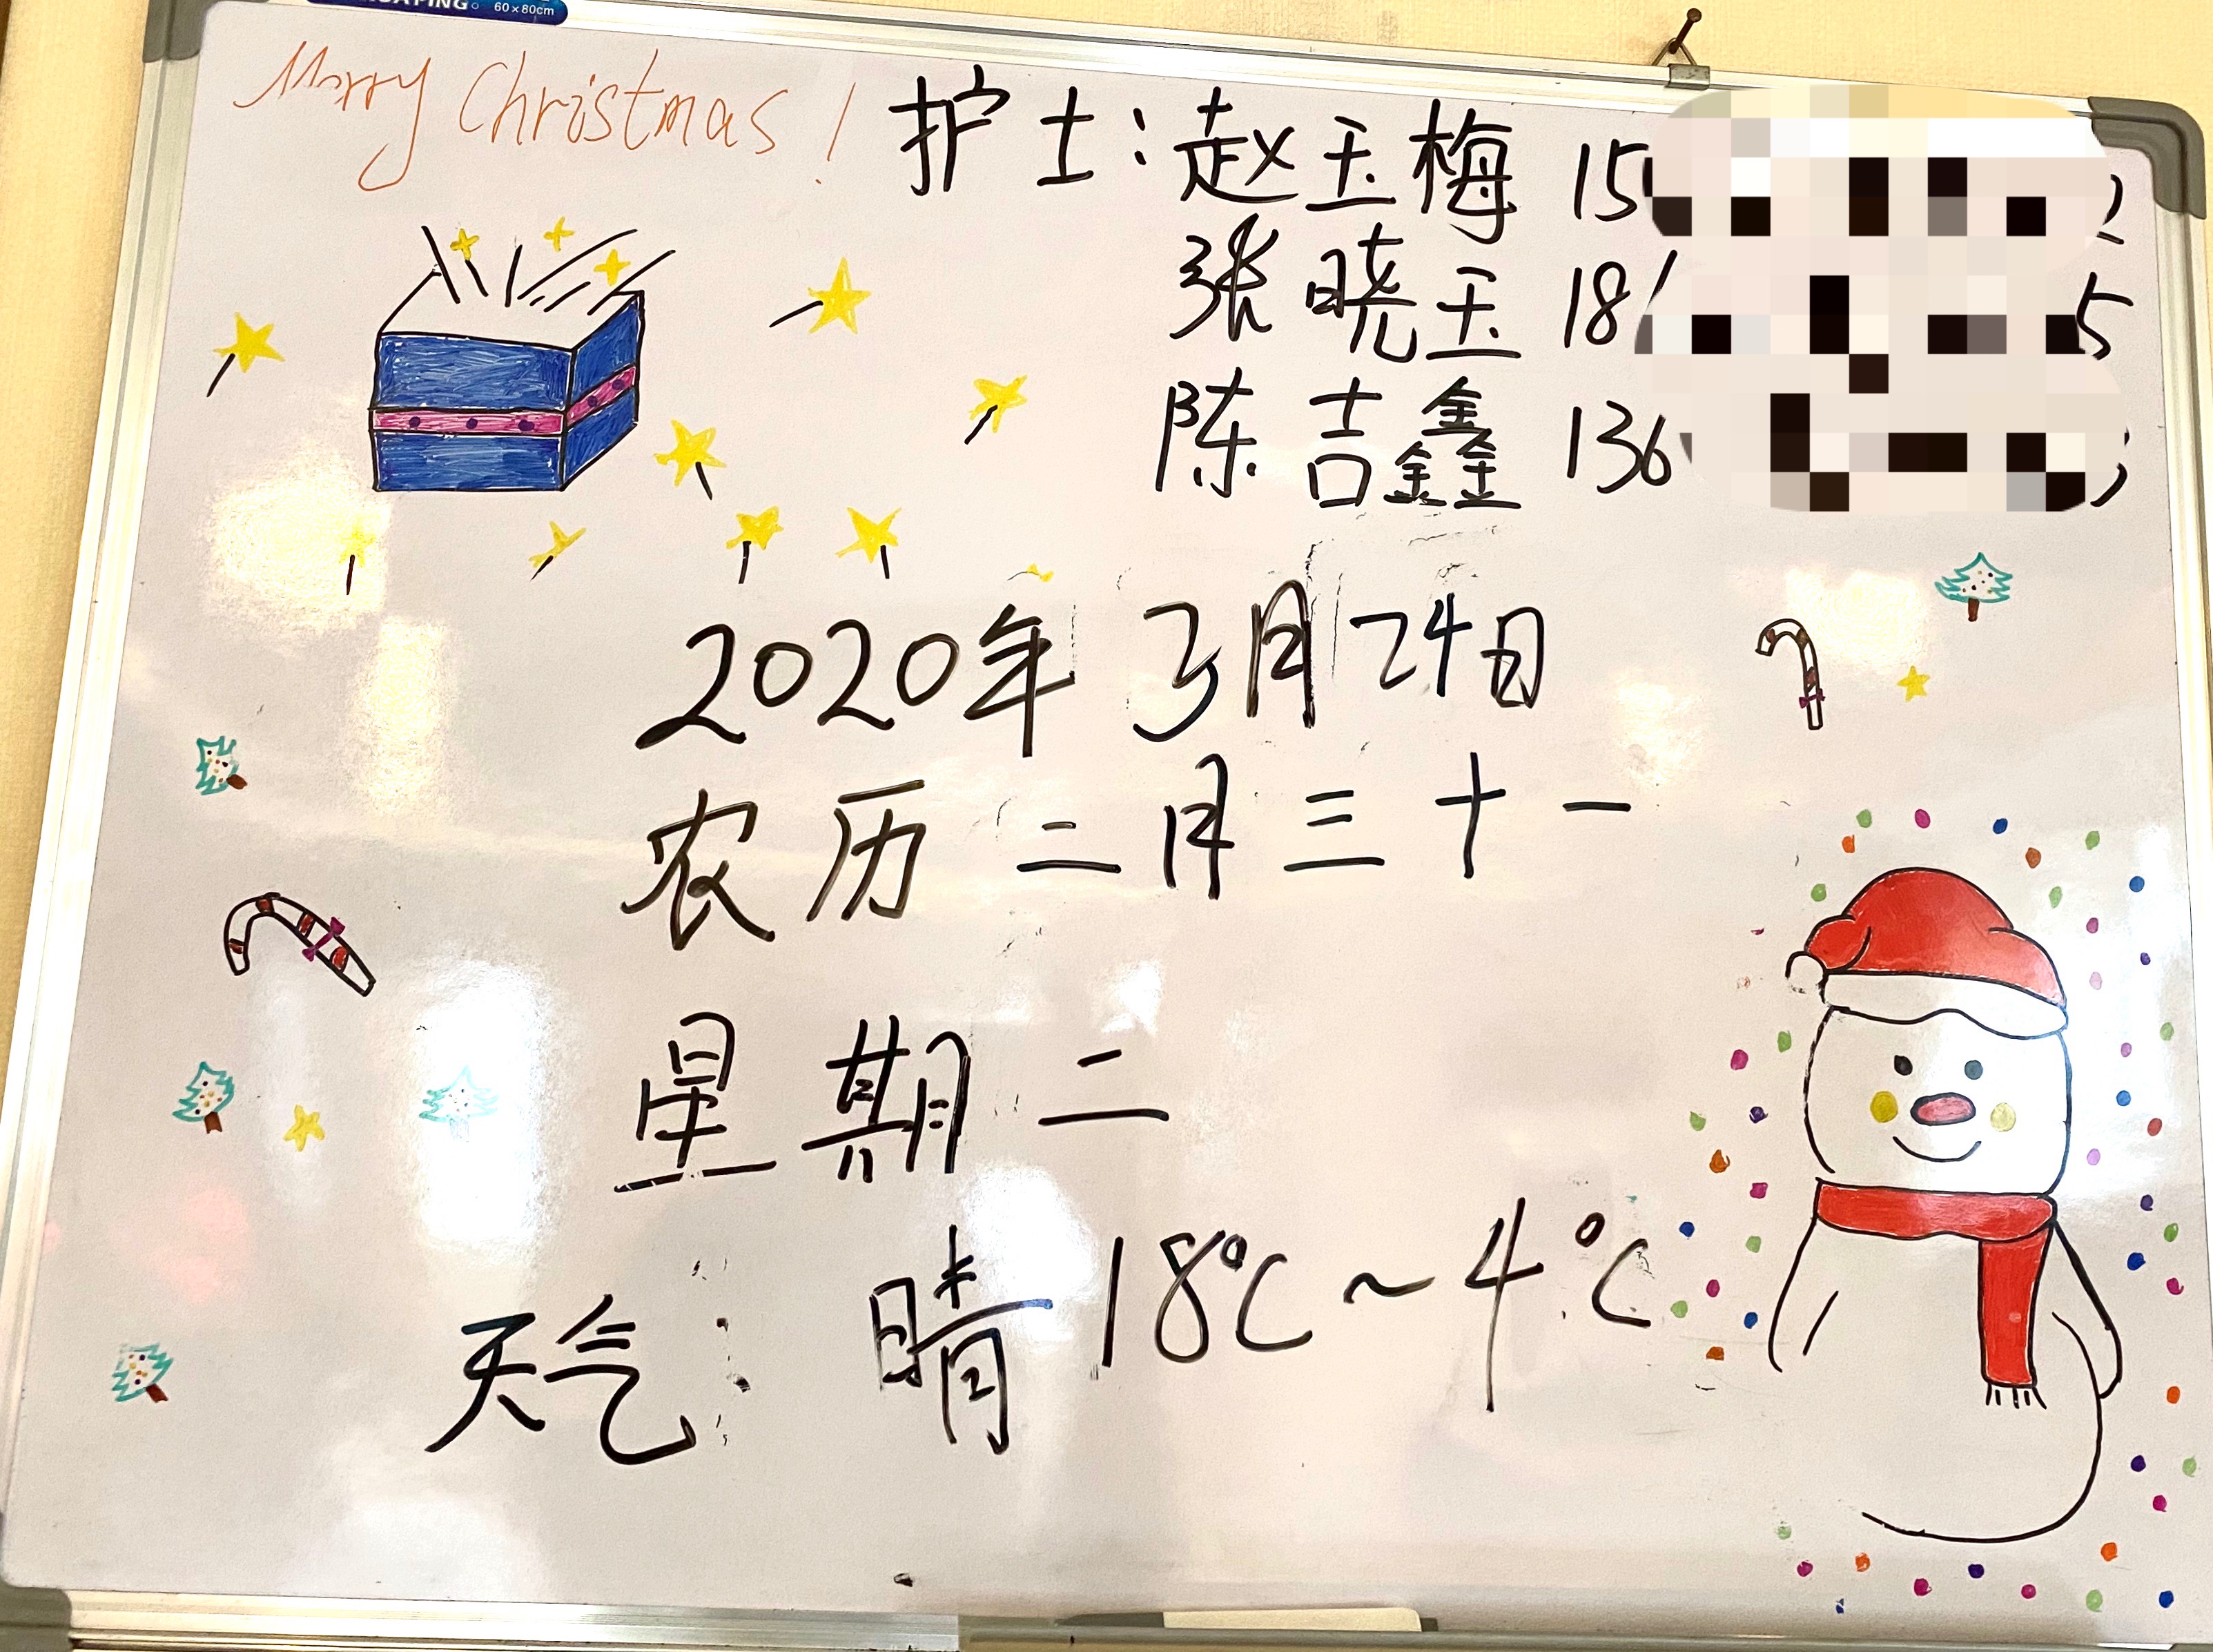 60×80cm
Merry Christmas!
护士:赵玉梅 15
张晓玉 18
陈吉鑫 136
2020年 3月24日
农历二月三十一
星期二
天气: 晴 18℃~4℃